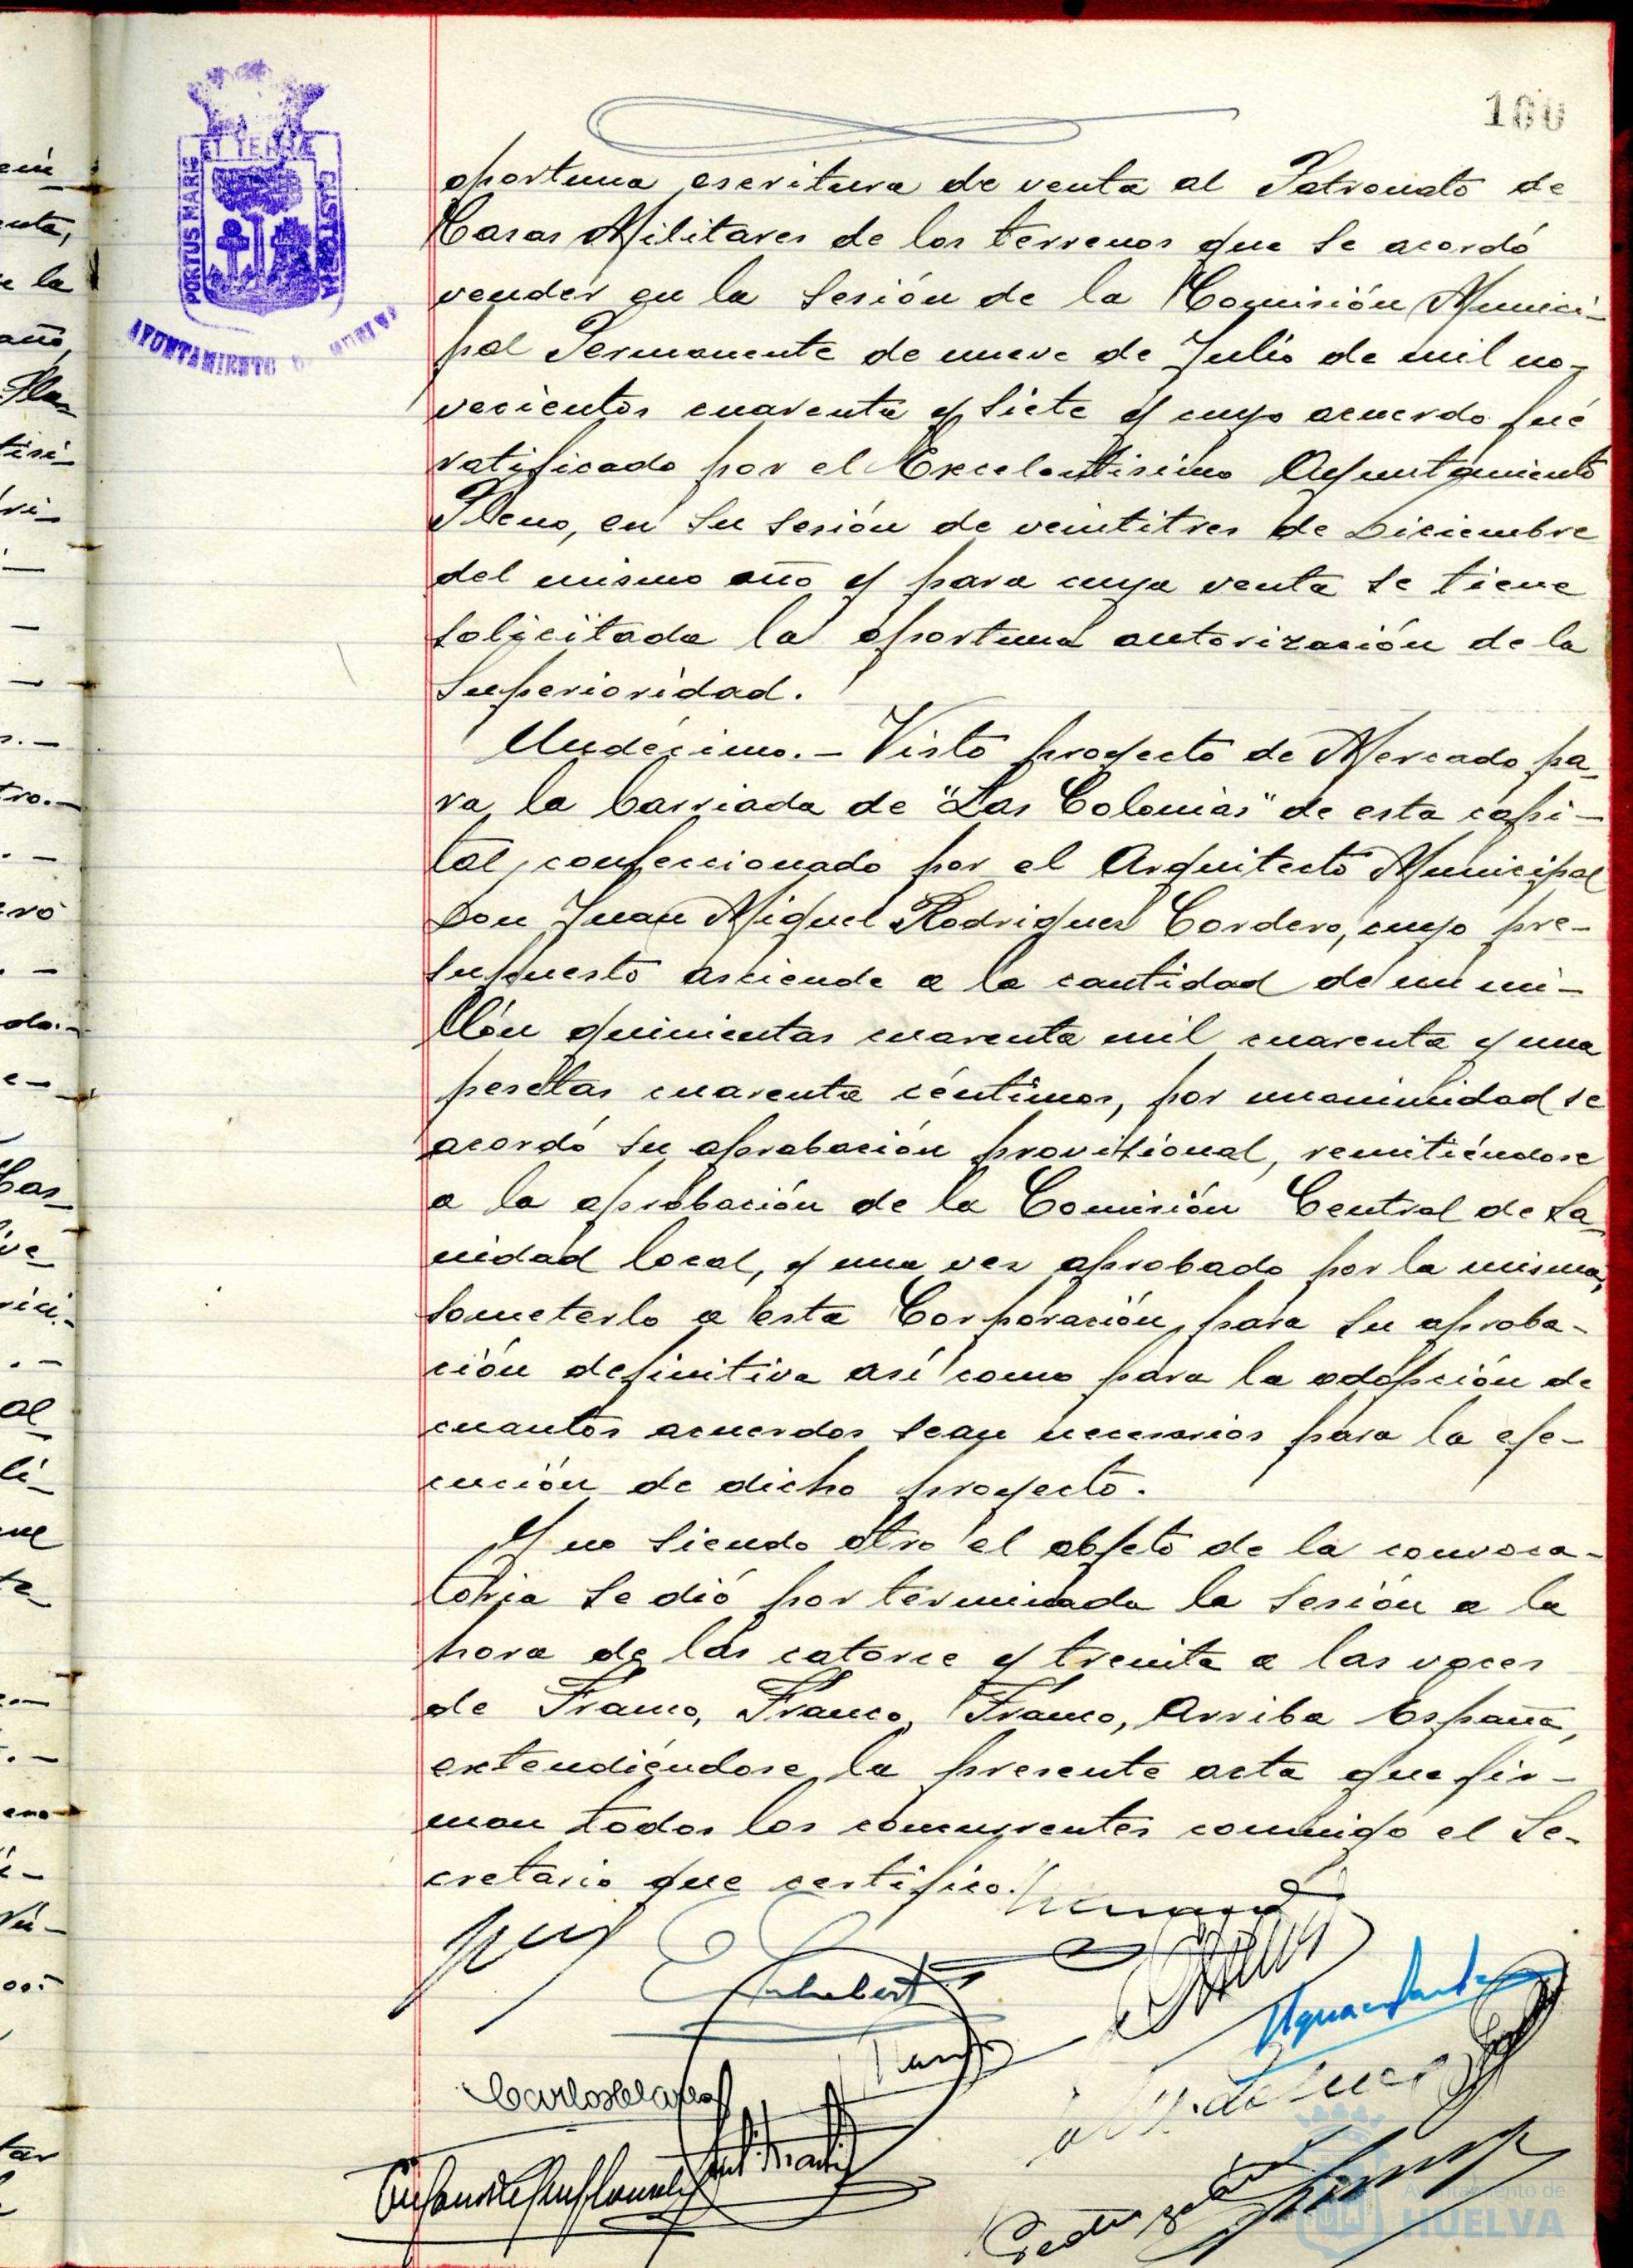 100
PORTUS MARIS ET TERRÆ CUSTODIA
AYUNTAMIENTO DE HUELVA
oportuna escritura de venta al Patronato de
Casas Militares de los terrenos que se acordó
vender en la sesión de la Comisión Munici-
pal Permanente de nueve de Julio de mil no-
vecientos cuarenta y siete y cuyo acuerdo fué
ratificado por el Excelentisimo Ayuntamiento
Pleno, en su sesión de veintitres de Diciembre
del mismo año y para cuya venta se tiene
solicitada la oportuna autorización de la
Superioridad.
Undécimo.- Visto proyecto de Mercado pa-
ra la barriada de "Las Colonias" de esta capi-
tal, confeccionado por el Arquitecto Municipal
Don Juan Miguel Rodriguez Cordero, cuyo pre-
supuesto asciende a la cantidad de un mi-
llón quinientas cuarenta mil cuarenta y una
pesetas cuarenta céntimos, por unanimidad se
acordó su aprobación provisional, remitiéndose
a la aprobación de la Comisión Central de Sa-
nidad local, y una vez aprobado por la misma,
someterlo a esta Corporación para su aproba-
ción definitiva así como para la adopción de
cuantos acuerdos sean necesarios para la eje-
cución de dicho proyecto.
Y no siendo otro el objeto de la convoca-
toria se dió por terminada la sesión a la
hora de las catorce y treinta a las voces
de Franco, Franco, Franco, Arriba España,
extendiéndose la presente acta que fir-
man todos los concurrentes conmigo el Se-
cretario que certifico.
Ayuntamiento de
HUELVA